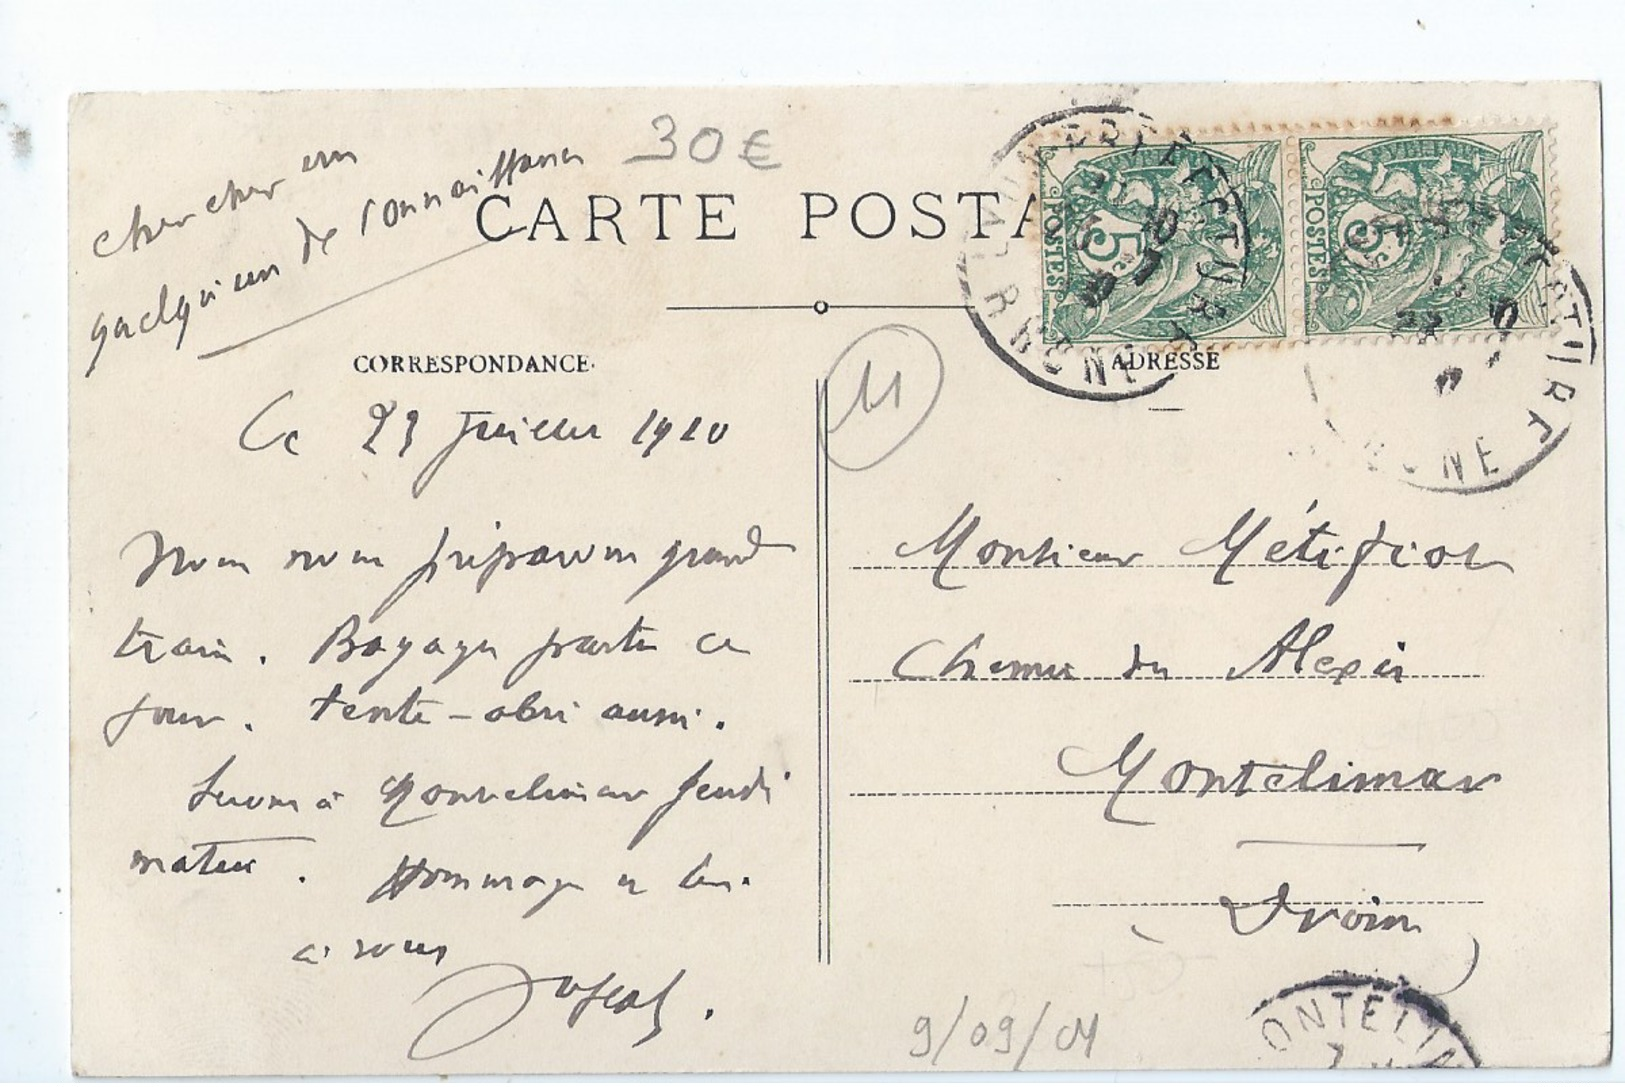 chercher un
quelqu'un de connaissance
30€
CARTE POSTA
POSTES 5
POSTES 5
CORRESPONDANCE.
ADRESSE
Ce 23 Juillet 1910
Nous nous préparons grand
train. Bagages partis ce
jour. tente-abri aussi.
Serons à Montelimar Jeudi
matin. Hommages et bien
à vous
Monsieur Métifiot
Chemin du Alexis
Montelimar
Drôme
9/09/04
ONTELIM